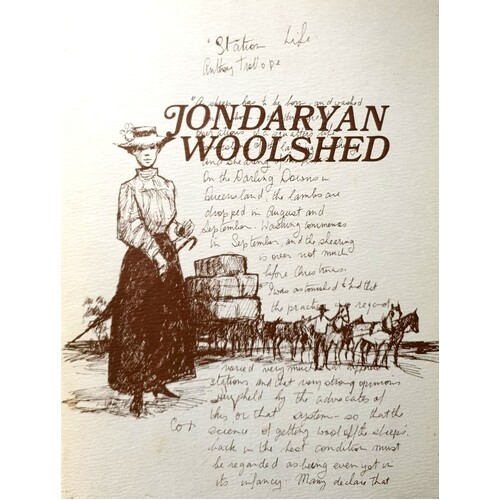 "Station Life.
Anthony Trollope
"A sheep has to be born, and washed
JONDARYAN
WOOLSHED
and shearing
On the Darling Downs in
Queensland, the lambs are
dropped in August and
September. Washing commences
in September, and the shearing
is over not much
before Christmas.
"I was astonished to find that
the practice as regards
varied very much at different
stations, and that very strong opinions
upheld by the advocates of
this or that system - so that the
science of getting wool off the sheeps'
back in the best condition must
be regarded as being even yet in
its infancy. Many declare that
Cox